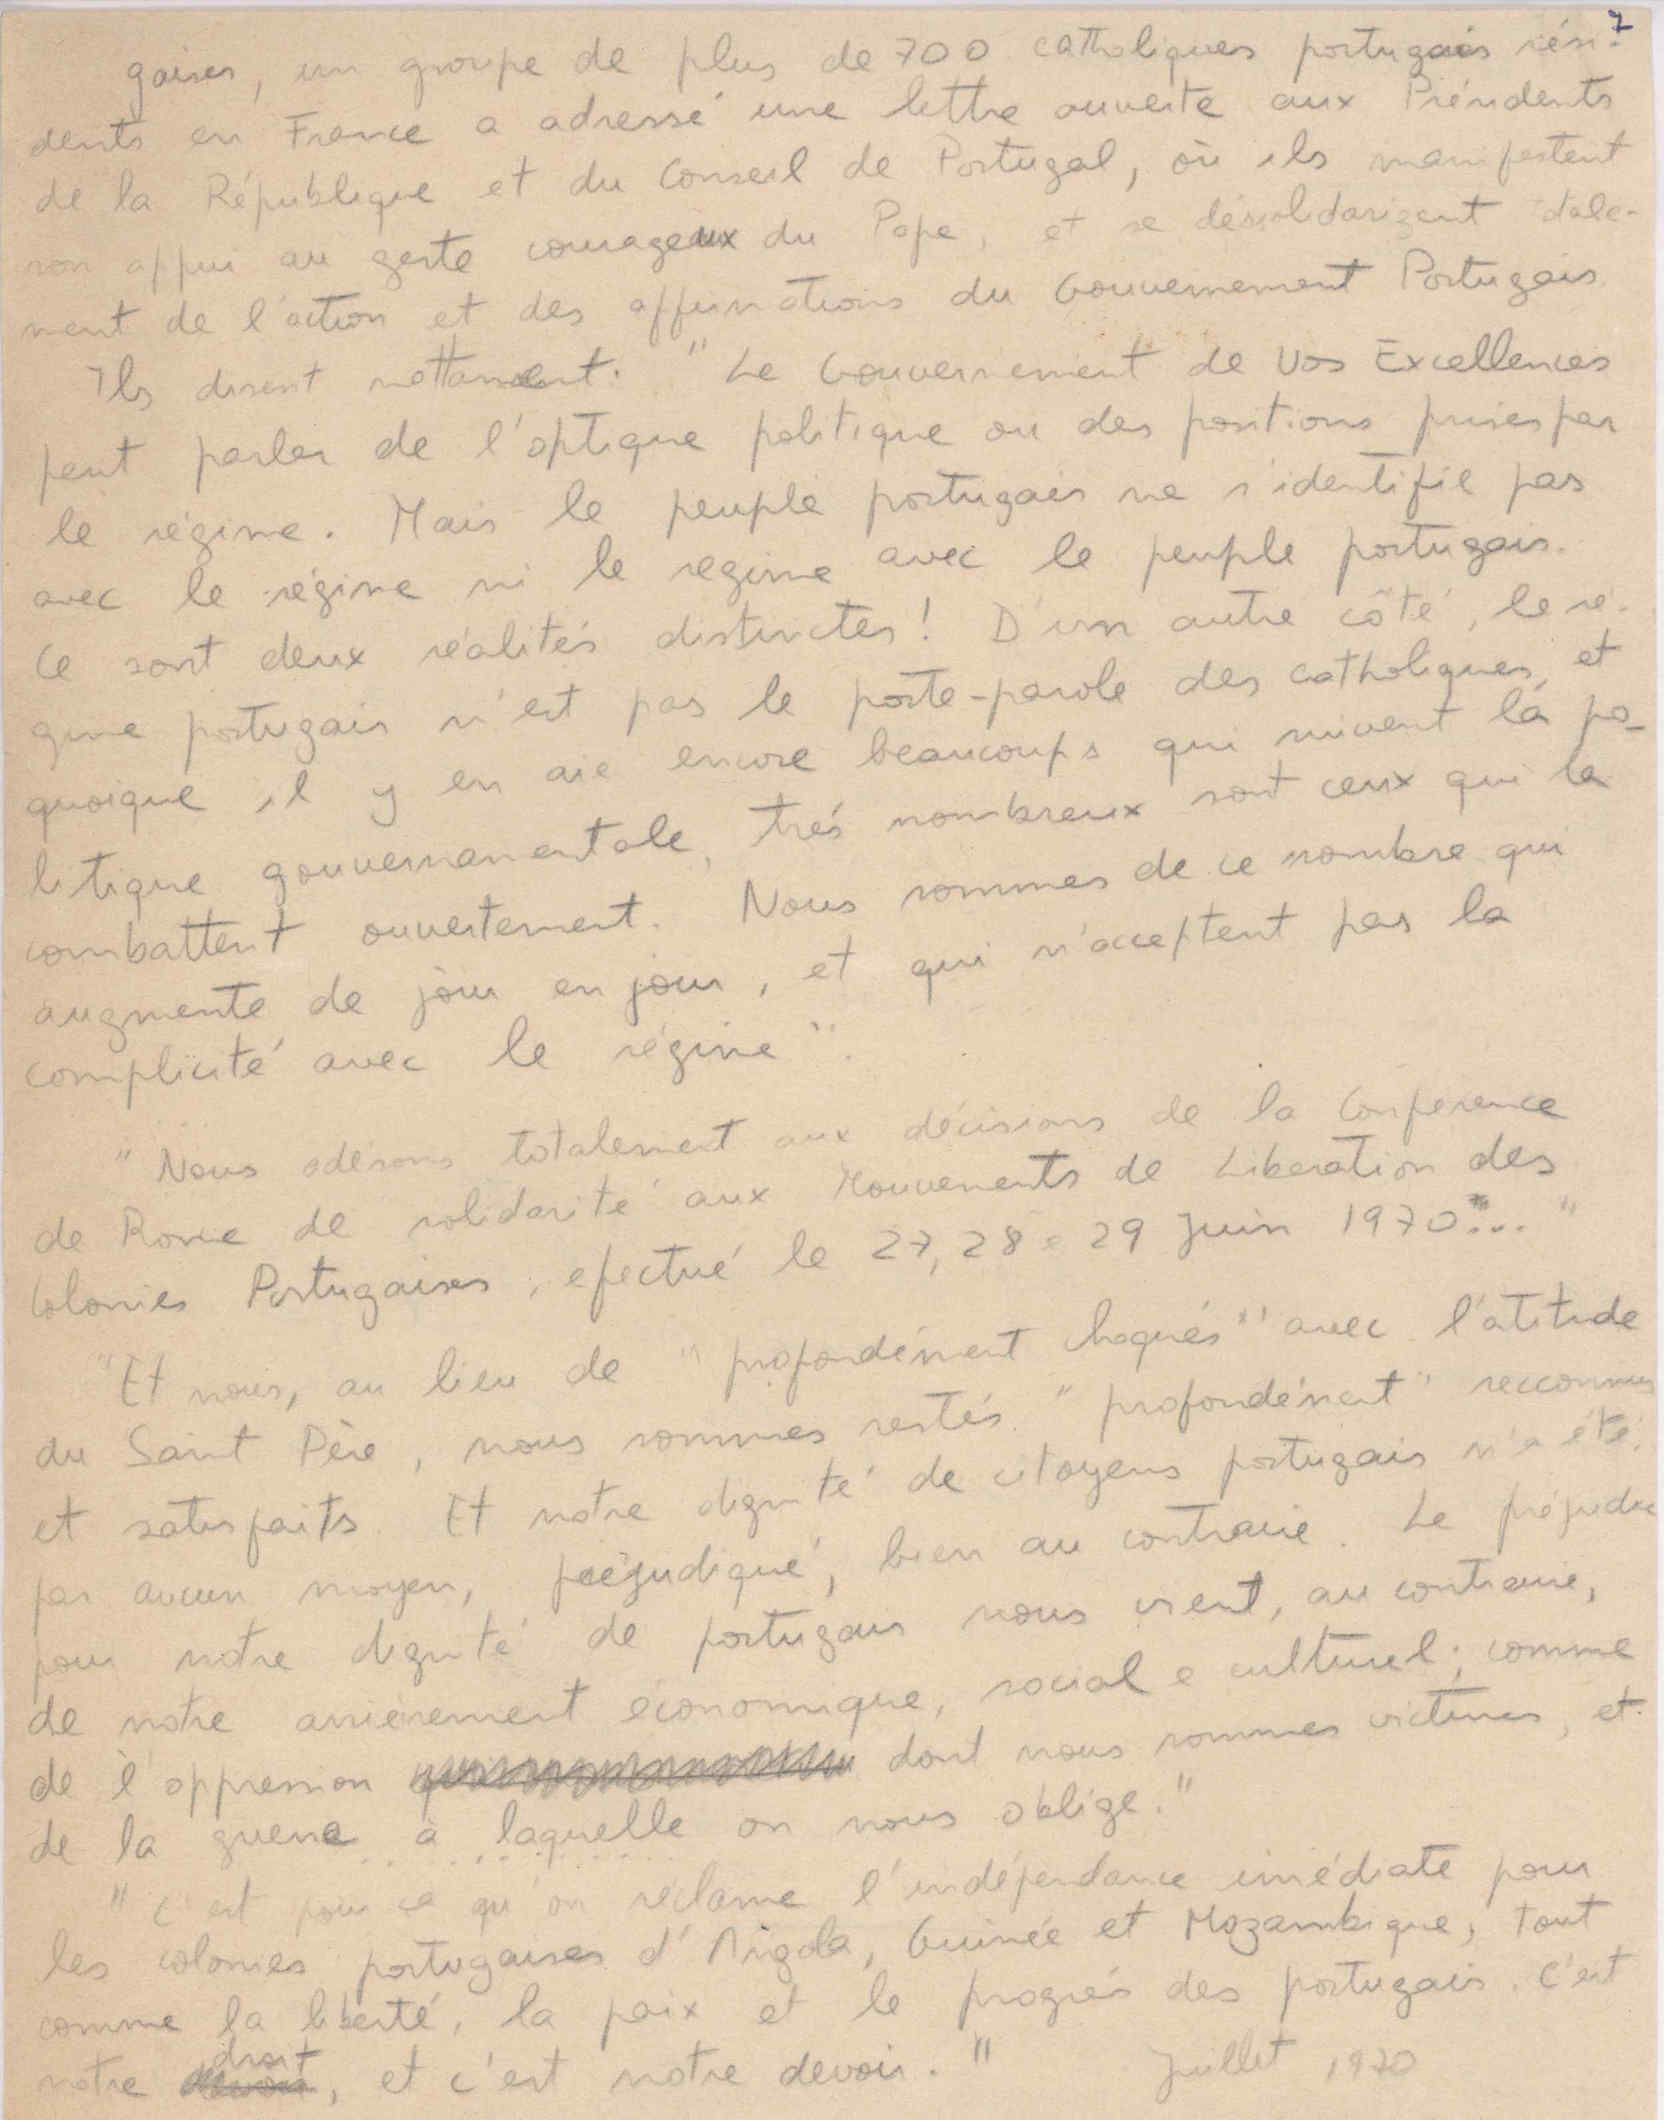 7
gaises, un groupe de plus de 700 catholiques portugais rési-
dents en France a adressé une lettre ouverte aux Présidents
de la République et du Conseil de Portugal, où ils manifestent
son appui au geste courageux du Pape, et se désolidarizent
ment de l'action et des affirmations du Gouvernement Portugais.
Ils disent nottament: "Le Gouvernement de Vos Excellences
peut parler de l'optique politique ou des positions prises par
le régime. Mais le peuple portugais ne s'identifie pas
avec le régime ni le regime avec le peuple portugais.
Ce sont deux réalités distinctes! D'un autre côté, le ré-
gime portugais n'est pas le porte-parole des catholiques, et
quoique il y en aie encore beaucoups qui suivent la po-
litique gouvernamentale, trés nombreux sont ceux qui la
combattent ouvertement. Nous sommes de ce nombre qui
augmente de jour en jour, et qui n'acceptent pas la
complicité avec le régime".
"Nous adérons totalement aux décisions de la Conference
de Rome de solidarité aux Mouvements de Liberation des
Colonies Portugaises, efectué le 27, 28 e 29 Juin 1970..."
"Et nous, au lieu de "profondément choqués" avec l'atitude
du Saint Père, nous sommes restés "profondément" recconnus
et satisfaits. Et notre dignité de citoyens portugais n'a été,
par aucun moyen, préjudiqué, bien au contraire. Le préjudice
pour notre dignité de portugais nous vient, au contraire,
de notre arrièrement économique, social e culturel; comme
de l'oppression dont nous sommes victimes, et
de la guerre à laquelle on nous oblige."
"C'est pour ce qu'on réclame l'indépendance imédiate pour
les colonies portugaises d'Angola, Guinée et Mozambique, tout
comme la liberté, la paix et le progrés des portugais. C'est
notre droit, et c'est notre devoir." Juillet 1970